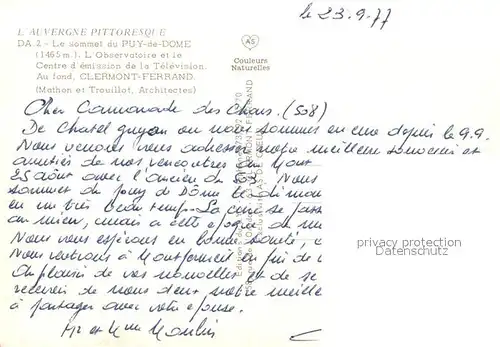 le 23.9.77
L'AUVERGNE PITTORESQUE
DA.2 - Le sommet du PUY-de-DOME
(1465 m). L'Observatoire et le
Centre d'émission de la Télévision.
Au fond, CLERMONT-FERRAND.
(Mathon et Trouillot, Architectes)
AS
Couleurs
Naturelles
Cher Camarade des Chars. (508)
De Chatel guyon ou nous sommes en cure depuis le 9.9.
Nous venons vous adresser notre meilleur souvenir et
amitiés de nos rencontres du
25 août avec l'ancien du 503. Nous
sommet du puy de Dôme le diman
en un très beau temps. La cure se pass
au mieux, mais a cette époque de
Nous vous espérons en bonne santé,
Nous rentrons à Montfermeil en fin de
Au plaisir de vos nouvelles et de se
recevoir de nous deux notre meille
à partager avec votre épouse.
Mr et Mme Moulin
privacy protection
by oldthing.de